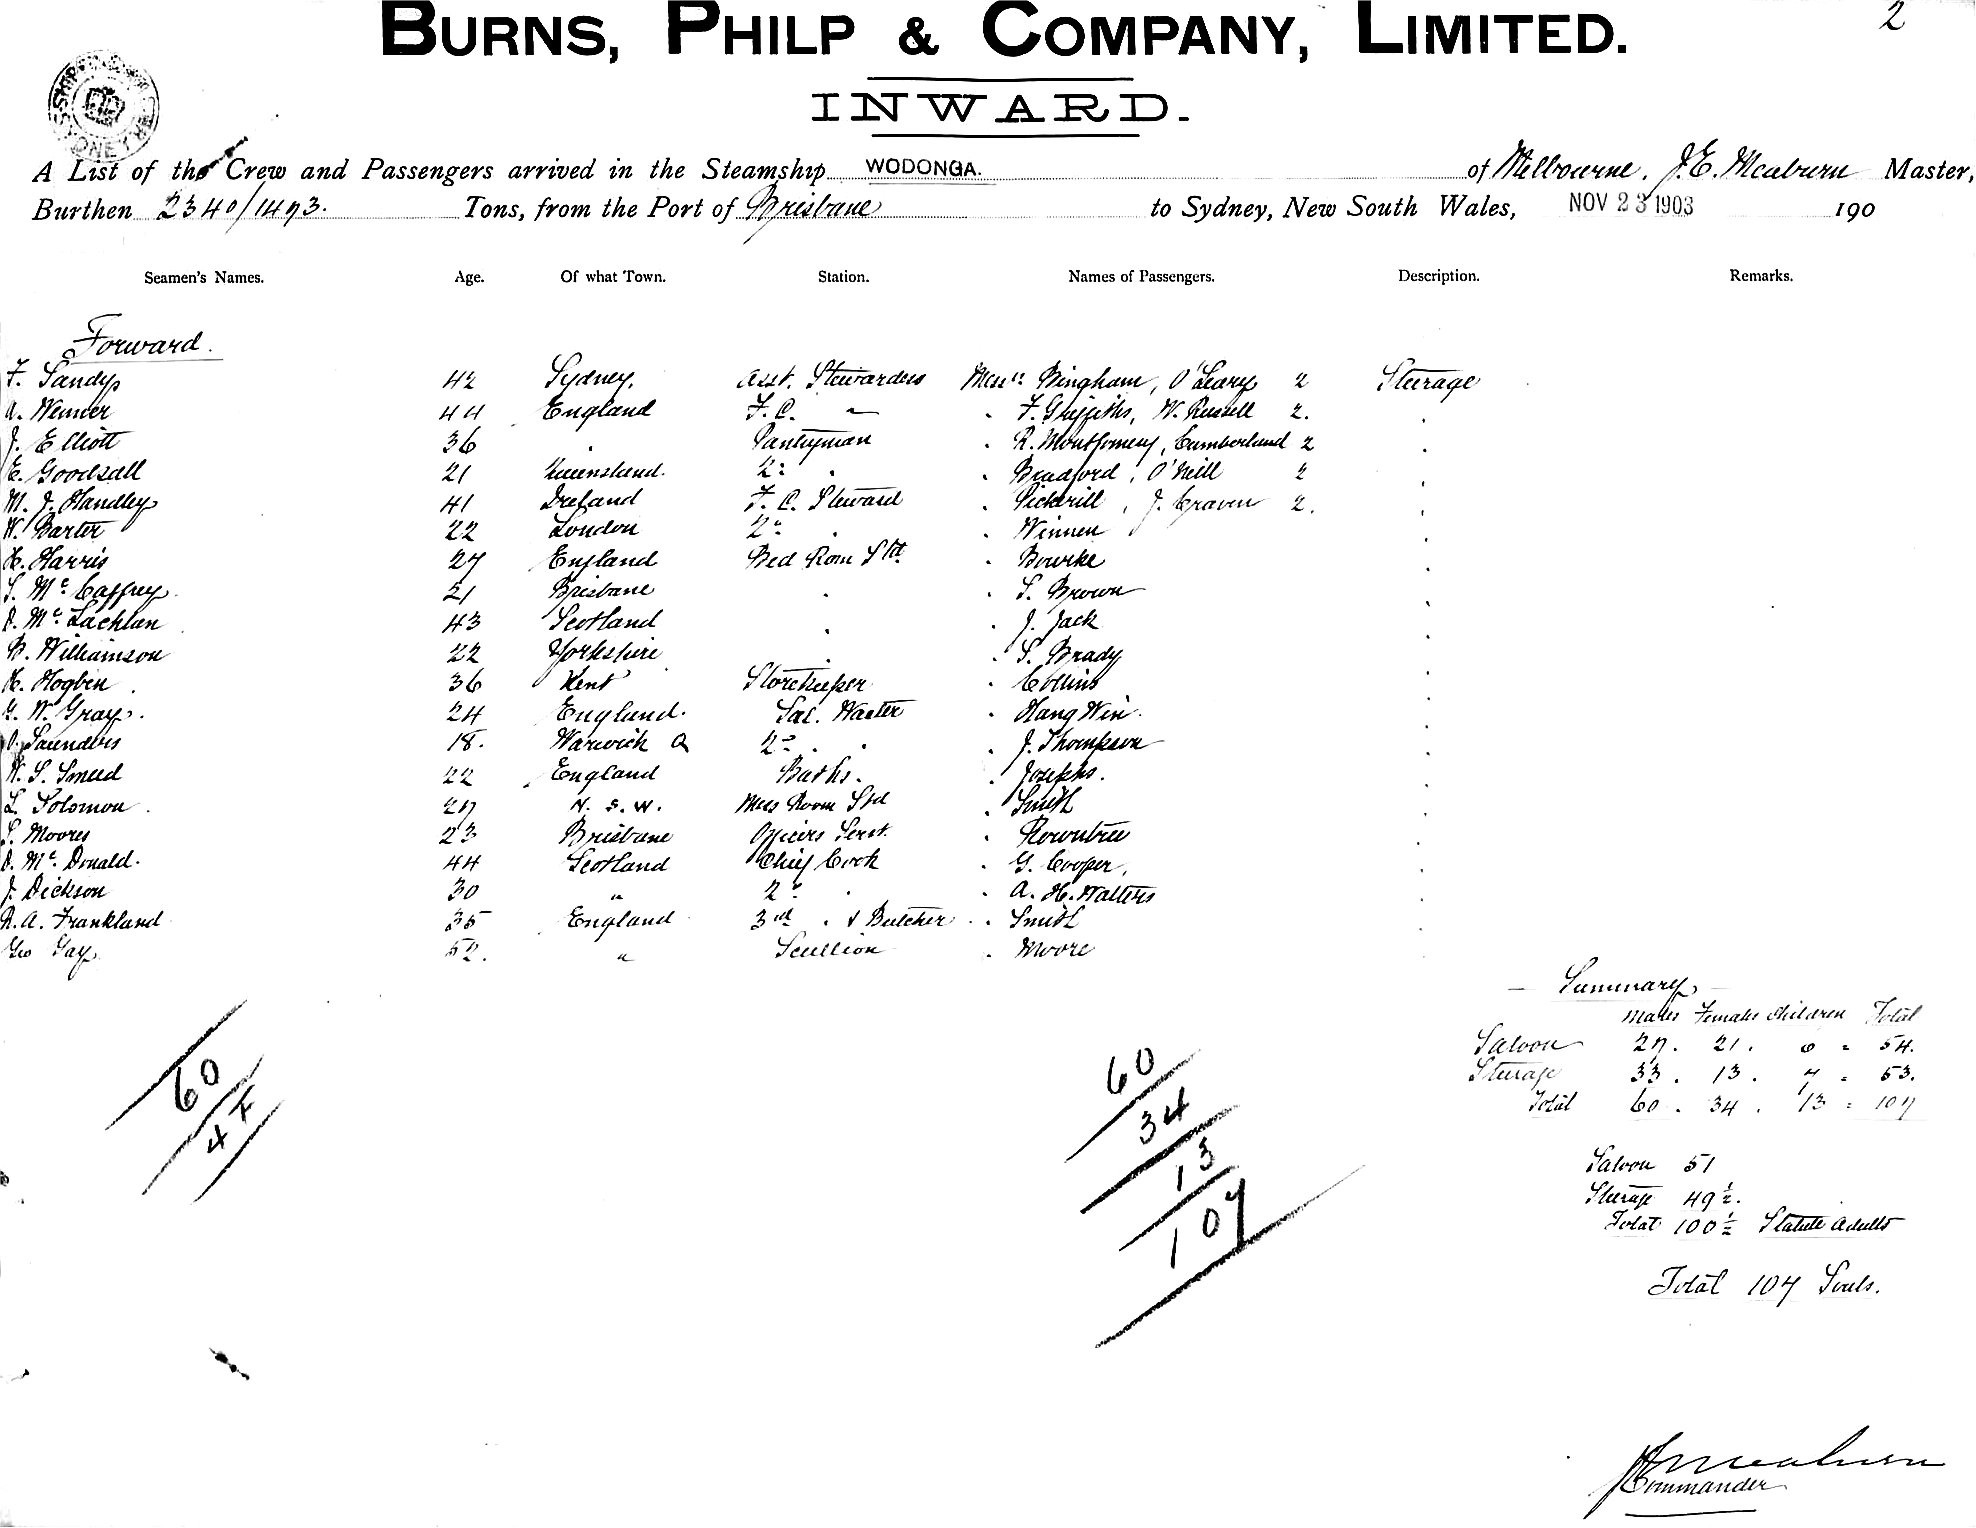 2
BURNS, PHILP & COMPANY, LIMITED.
INWARD.
A List of the Crew and Passengers arrived in the Steamship WODONGA. of Melbourne, J. E. Meaburn Master,
Burthen 2340/1493. Tons, from the Port of Brisbane to Sydney, New South Wales, NOV 23 1903 190
Seamen's Names. Age. Of what Town. Station. Names of Passengers. Description. Remarks.
Forward.
F. Sandys 42 Sydney. Asst. Stewardess Messrs Bingham, O'Leary 2 Steerage
A. Wenner 44 England F. C. " . F. Griffiths, W. Russell 2.
J. Elliott 36 " Pantryman . R. Montgomery, Cumberland 2
E. Goodsall 21 Queensland. 2: " . Bradford, O'Neill 2
M. J. Handley 41 Ireland F. C. Steward . Pickrill, J. Craven 2.
W. Barter 22 London 2: " . Winnen
H. Harris 27 England Bed Room Std. . Bourke
S. Mc Caffrey 21 Brisbane " . S. Brown
D. Mc Lachlan 43 Scotland " . J. Jack
B. Williamson 22 Yorkshire " . S. Brady
H. Hogben 36 Kent Storekeeper . Collins
G. W. Gray. 24 England. Sal. Waiter . Hang Win.
Saunders 18. Warwick Q 2: " " . J. Thompson
W. S. Smeed 22 England Baths. . Josephs.
L. Solomon 27 N. S. W. Mess Room Std . Smith
S. Moores 23 Brisbane Officers Servt. . Rowntree
D. Mc Donald. 44 Scotland Chief Cook . G. Cooper,
J. Dickson 30 " 2: " . A. H. Walters
R. A. Frankland 35 England 3rd " & Butcher . Smith
Geo Gay. 52. " Scullion . Moore
— Summary, —
Males Females Children Total
Saloon 27. 21. 6 = 54.
Steerage 33. 13. 7 = 53.
Total 60. 34. 13 = 107
60
44
60
34
13
107
Saloon 51
Steerage 49½.
Total 100½ Statute Adults
Total 107 Souls.
J E Meaburn
Commander